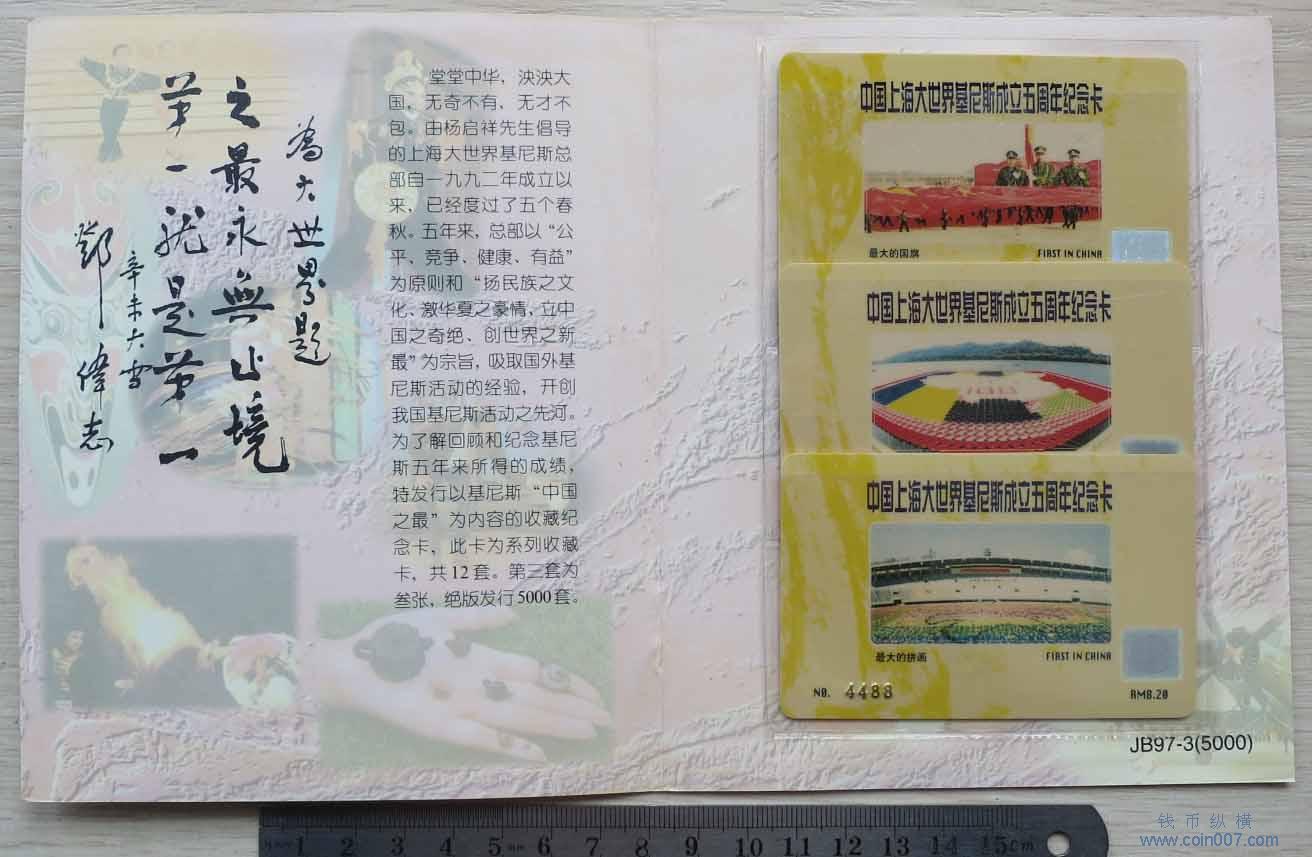 為大世界題
之最永無止境
第一就是第一
辛未大雪
鄧偉志
堂堂中华，泱泱大
国，无奇不有，无才不
包。由杨启祥先生倡导
的上海大世界基尼斯总
部自一九九二年成立以
来，已经度过了五个春
秋。五年来，总部以“公
平、竞争、健康、有益”
为原则和“扬民族之文
化、激华夏之豪情，立中
国之奇绝、创世界之新
最”为宗旨，吸取国外基
尼斯活动的经验，开创
我国基尼斯活动之先河。
为了解回顾和纪念基尼
斯五年来所得的成绩，
特发行以基尼斯“中国
之最”为内容的收藏纪
念卡，此卡为系列收藏
卡，共12套。第三套为
叁张，绝版发行5000套。
中国上海大世界基尼斯成立五周年纪念卡
最大的国旗 FIRST IN CHINA
中国上海大世界基尼斯成立五周年纪念卡
中国上海大世界基尼斯成立五周年纪念卡
最大的拼画 FIRST IN CHINA
NO. 4488 RMB.20
JB97-3(5000)
1 2 3 4 5 6 7 8 9 10 11 12 13 14 15cm
钱币纵横
www.coin007.com